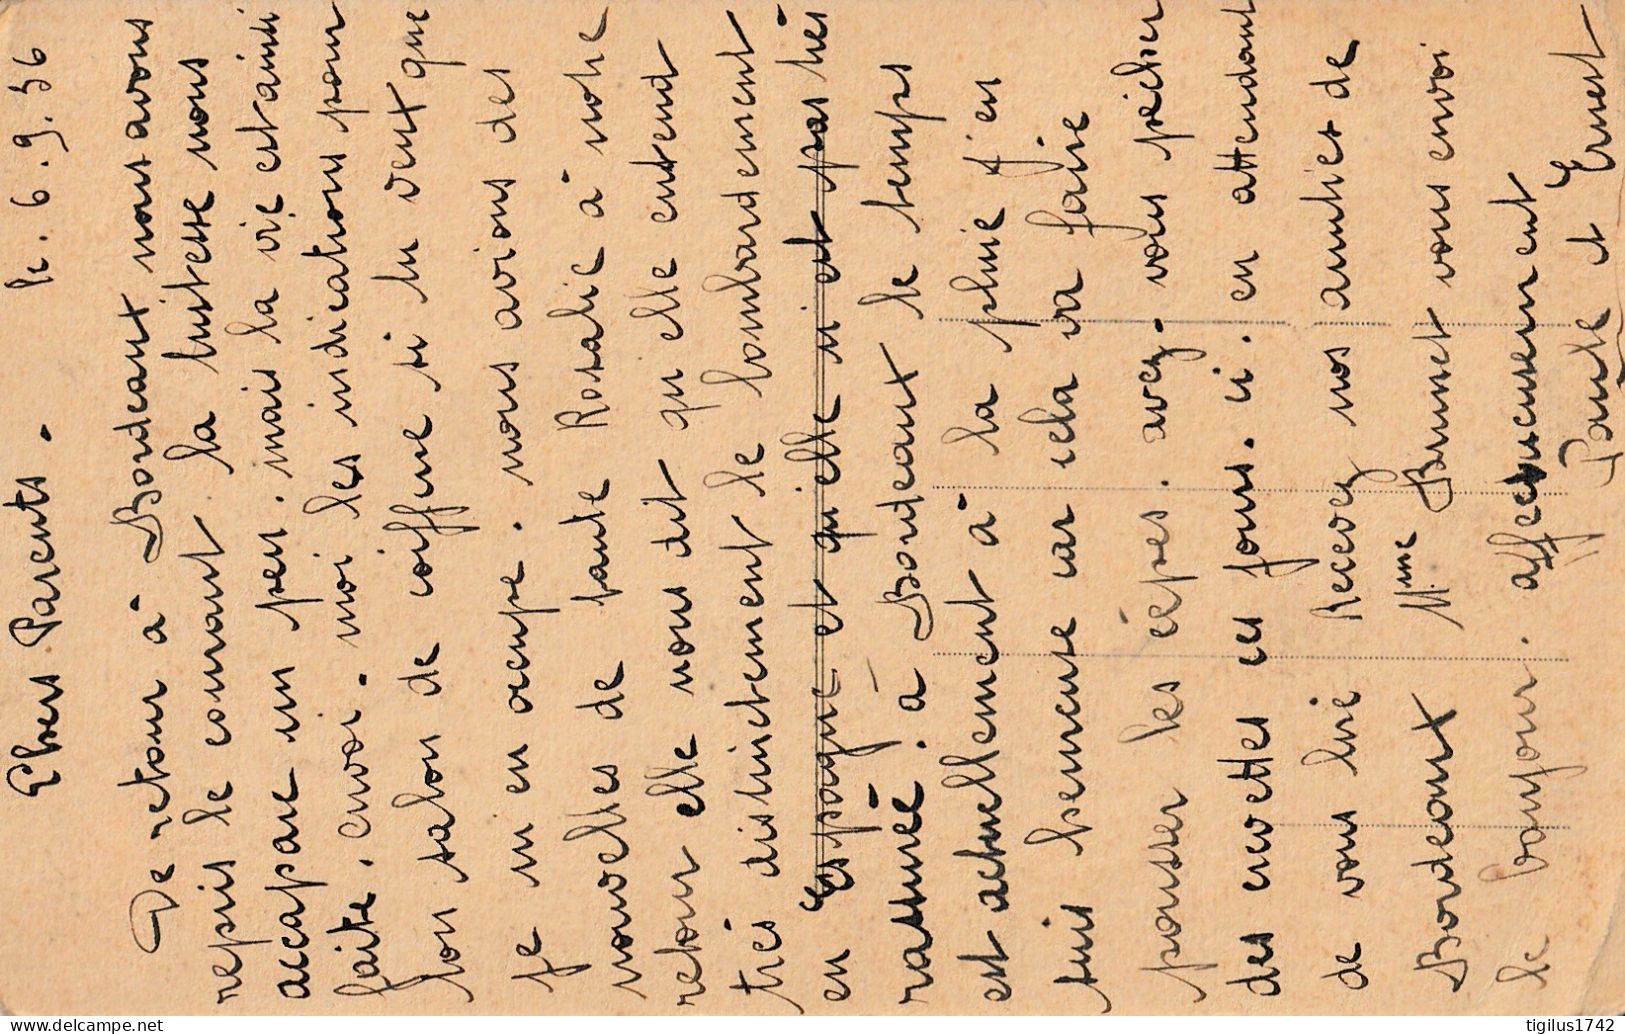 Chers Parents. le. 6. 9. 36
De retour à Bordeaux nous avons
repris le courant la tristesse nous
accapare un peu. mais la vie est ainsi
faite. envoi. moi les indications pour
ton salon de coiffure si tu veut que
je m en occupe. nous avions des
nouvelles de tante Rosalie à notre
retour elle nous dit qu elle entend
très distinctement le bombardement
en Espagne et qu'elle n'est pas très
rassurée. à Bordeaux le temps
est actuellement à la pluie j'en
suis heureuse car cela va faire
pousser les cèpes. avez-vous pêcher
des crevettes ces jours. ci. en attendant
de vous lire Recevez nos amitiés de
Bordeaux Mme Brunet vous envoi
le bonjour. affectueusement
Paule et Ernest
tigilus1742